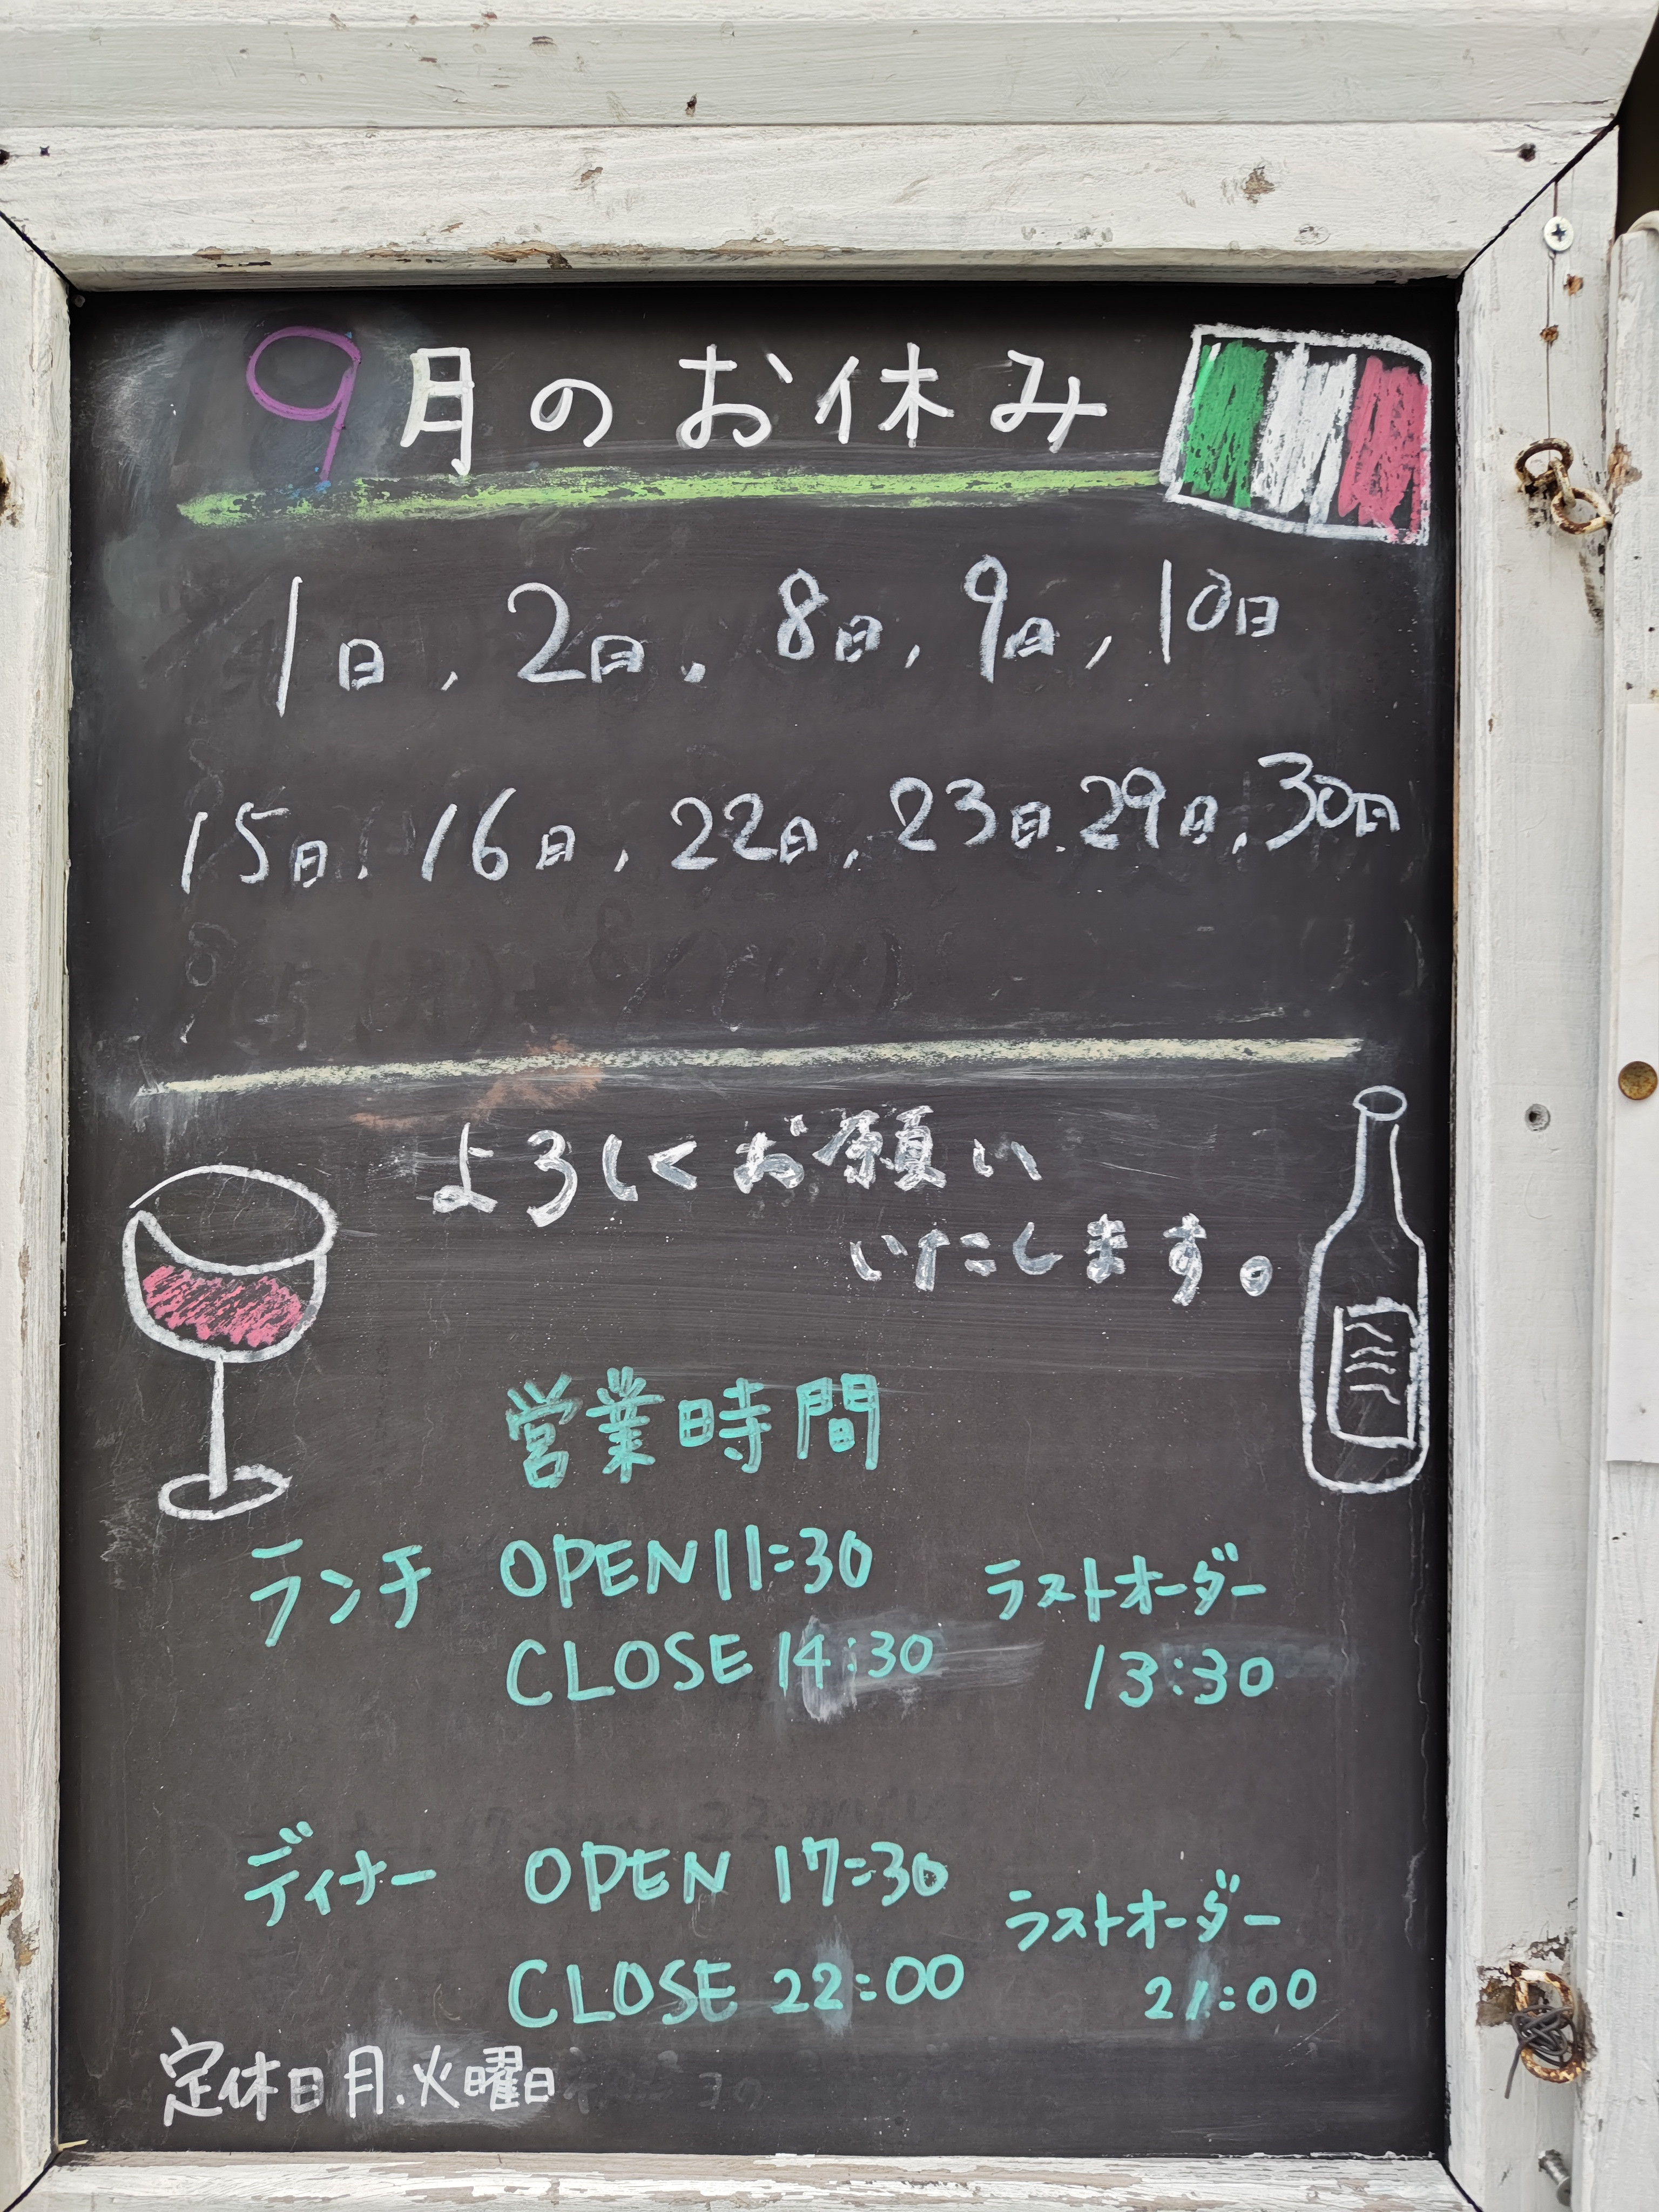 9月のお休み
1日,2日,8日,9日,10日
15日,16日,22日,23日,29日,30日
よろしくお願い
いたします。
営業時間
ランチ OPEN 11:30 ラストオーダー
CLOSE 14:30 13:30
ディナー OPEN 17:30 ラストオーダー
CLOSE 22:00 21:00
定休日 月.火曜日